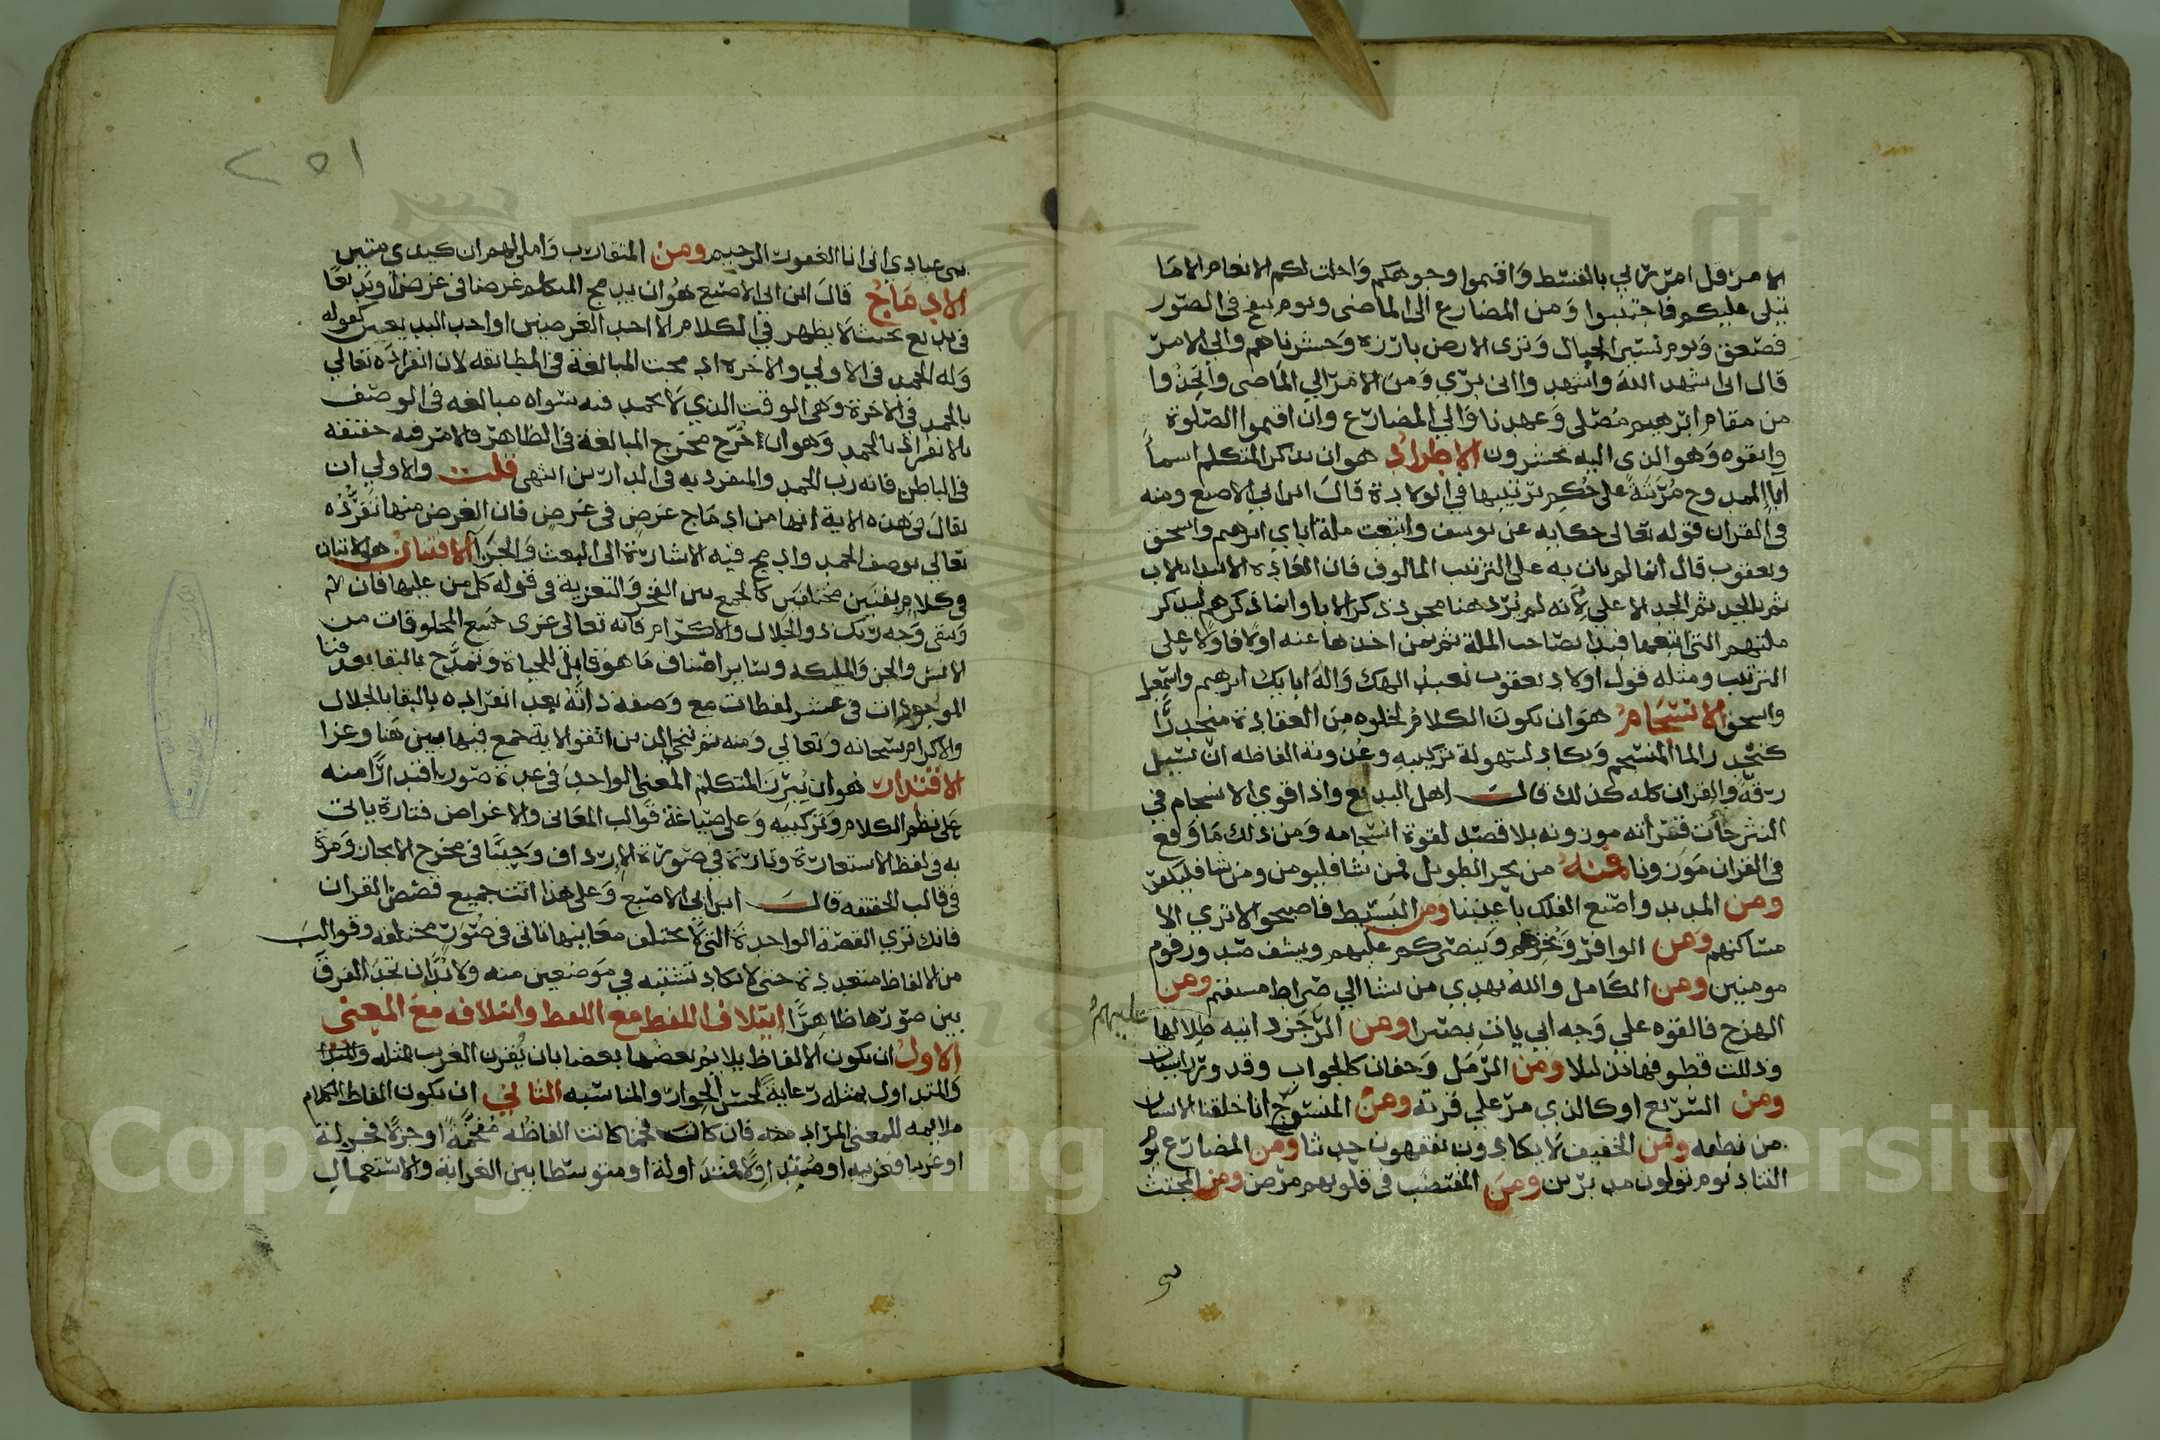 الامر قل امر ربي بالقسط واقيموا وجوهكم واحلت لكم الانعام الا ما
يتلى عليكم فاجتنبوا ومن المضارع الى الماضى ويوم ينفخ في الصور
فصعق ويوم نسير الجبال وترى الارض بارزة وحشرناهم والى الامر
قال انى اشهد الله واشهدوا انى برى ومن الامر الي الماضى واتخذوا
من مقام ابرهيم مصلى وعهدنا والي المضارع وان اقيموا الصلوة
واتقوه وهو الذى اليه تحشرون الاطراد هو ان يذكر المتكلم اسما
ابا الممدوح مرتبة على حكم ترتيبها في الولادة قال ابن ابي الاصبع ومنه
في القران قوله تعالى حكاية عن يوسف واتبعت ملة اباي ابرهيم واسحق
ويعقوب قال انما لم يات به على الترتيب المالوف فان العادة الابتدا بالاب
ثم بالجد ثم الجد الاعلي لانه لم يرد هنا مجرد ذكر الابا وانما ذكرهم ليذكر
ملتهم التى اتبعها فبدا بصاحب الملة ثم بمن اخذها عنه اولا فاولا على
الترتيب ومثله قول اولاد يعقوب نعبد الهك واله ابايك ابرهيم واسمعيل
واسحق الانسجام هو ان يكون الكلام لخلوه من العقادة منحدرا
كتحدر الما المنسجم ويكاد لسهولة تركيبه وعذوبة الفاظه ان يسيل
رقة والقران كله كذلك قال اهل البديع واذا قوي الانسجام في
النثر جات فقراته موزونة بلا قصد لقوة انسجامه ومن ذلك ما وقع
في القران موزونا فمنه من بحر الطويل فمن شا فليومن ومن شا فليكفر
ومن المديد واصنع الفلك باعيننا ومن البسيط فاصبحوا لا ترى الا
مساكنهم ومن الوافر ويخزهم وينصركم عليهم ويشف صدور قوم
مومنين ومن الكامل والله يهدي من يشا الي صراط مستقيم ومن
الهزج فالقوه علي وجه ابي يات بصيرا ومن الرجز دانية ظلالها
عليهم
وذللت قطوفها تذليلا ومن الرمل وجفان كالجواب وقدور راسيات
ومن السريع او كالذي مر علي قرية ومن المنسرح انا خلقنا الانسان
من نطفة ومن الخفيف لا يكادون يفقهون حديثا ومن المضارع يوم
التناد يوم تولون مدبرين ومن المقتضب في قلوبهم مرض ومن المجتث
٢٥١
نبى عبادي انى انا الغفور الرحيم ومن المتقارب واملى لهم ان كيدى متين
الادماج قال ابن ابى الاصبع هو ان يدمج المتكلم غرضا في غرض او بديعا
في بديع بحيث لا يظهر في الكلام الا احد الغرضين او احد البديعين كقوله
وله الحمد فى الاولي والاخرة ادمجت المبالغة في المطابقة لان انفراده تعالي
بالحمد في الاخرة وهي الوقت الذي لا يحمد فيه سواه مبالغة في الوصف
بالانفراد بالحمد وهو ان اخرج مخرج المبالغة في الظاهر فالامر فيه حقيقة
في الباطن فانه رب الحمد والمنفرد به في الدارين انتهى قلت والاولي ان
يقال في هذه الاية انها من ادماج غرض في غرض فان الغرض منها تفرده
تعالي بوصف الحمد وادمج فيه الاشارة الى البعث والجزا الافتنان هو الاتيان
في كلام بفنين مختلفين كالجمع بين الفخر والتعزية في قوله كل من عليها فان
ويبقى وجه ربك ذو الجلال والاكرام فانه تعالى عزى جميع المخلوقات من
الانس والجن والمليكه وساير اصناف ما هو قابل للحياة وتمدح بالبقا بعد فنا
الموجودات في عشر لفظات مع وصفه ذاته بعد انفراده بالبقا بالجلال
والاكرام سبحانه وتعالي ومنه ثم ننجي الذين اتقوا الاية جمع فيها بين هنا وعزا
الاقتدار هو ان يبرز المتكلم المعنى الواحد في عدة صور اقتدارا منه
على نظم الكلام وتركيبه وعلى صياغة قوالب المعاني والاغراض فتارة ياتى
به في لفظ الاستعارة وتارة في صورة الارداف وحينا في مخرج الايجاز ومرة
في قالب الحقيقه قال ابن ابى الاصبع وعلى هذا اتت جميع قصص القران
فانك ترى القصة الواحدة التى لا تختلف معانيها تاتى في صور مختلفه وقوالب
من الالفاظ متعددة حتى لا تكاد تشتبه في موضعين منه ولا بد ان تجد الفرق
بين صورها ظاهرا ايتلاف اللفظ مع اللفظ وايتلافه مع المعنى
الاول ان تكون الالفاظ يلايم بعضها بعضا بان يقرن الغريب بمثله
والمتداول بمثله رعاية لحسن الجوار والمناسبه الثاني ان تكون الفاظ الكلام
ملايمة للمعنى المراد منه فان كان فخما كانت الفاظه مفخمة او جزلا فجزلة
او غريبا فغريبه او متداولا فمتداولة او متوسطا بين الغرابة والاستعمال
Copyright © King Saud University